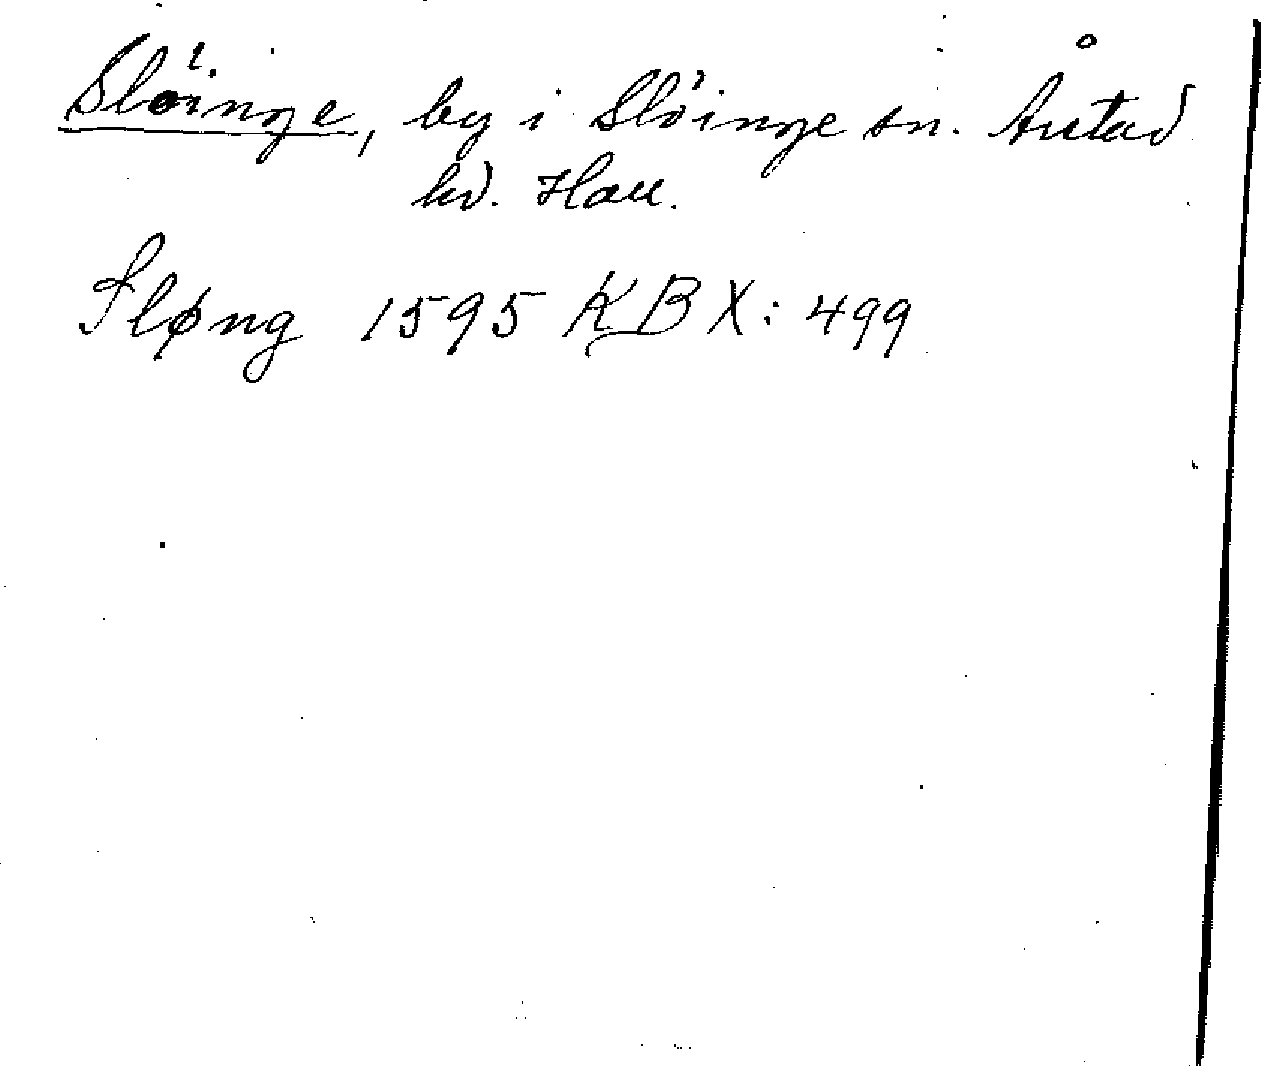 Slöinge, by i Slöinge sn. Årstad
hd. Hall.
Sløng 1595 KB X: 499